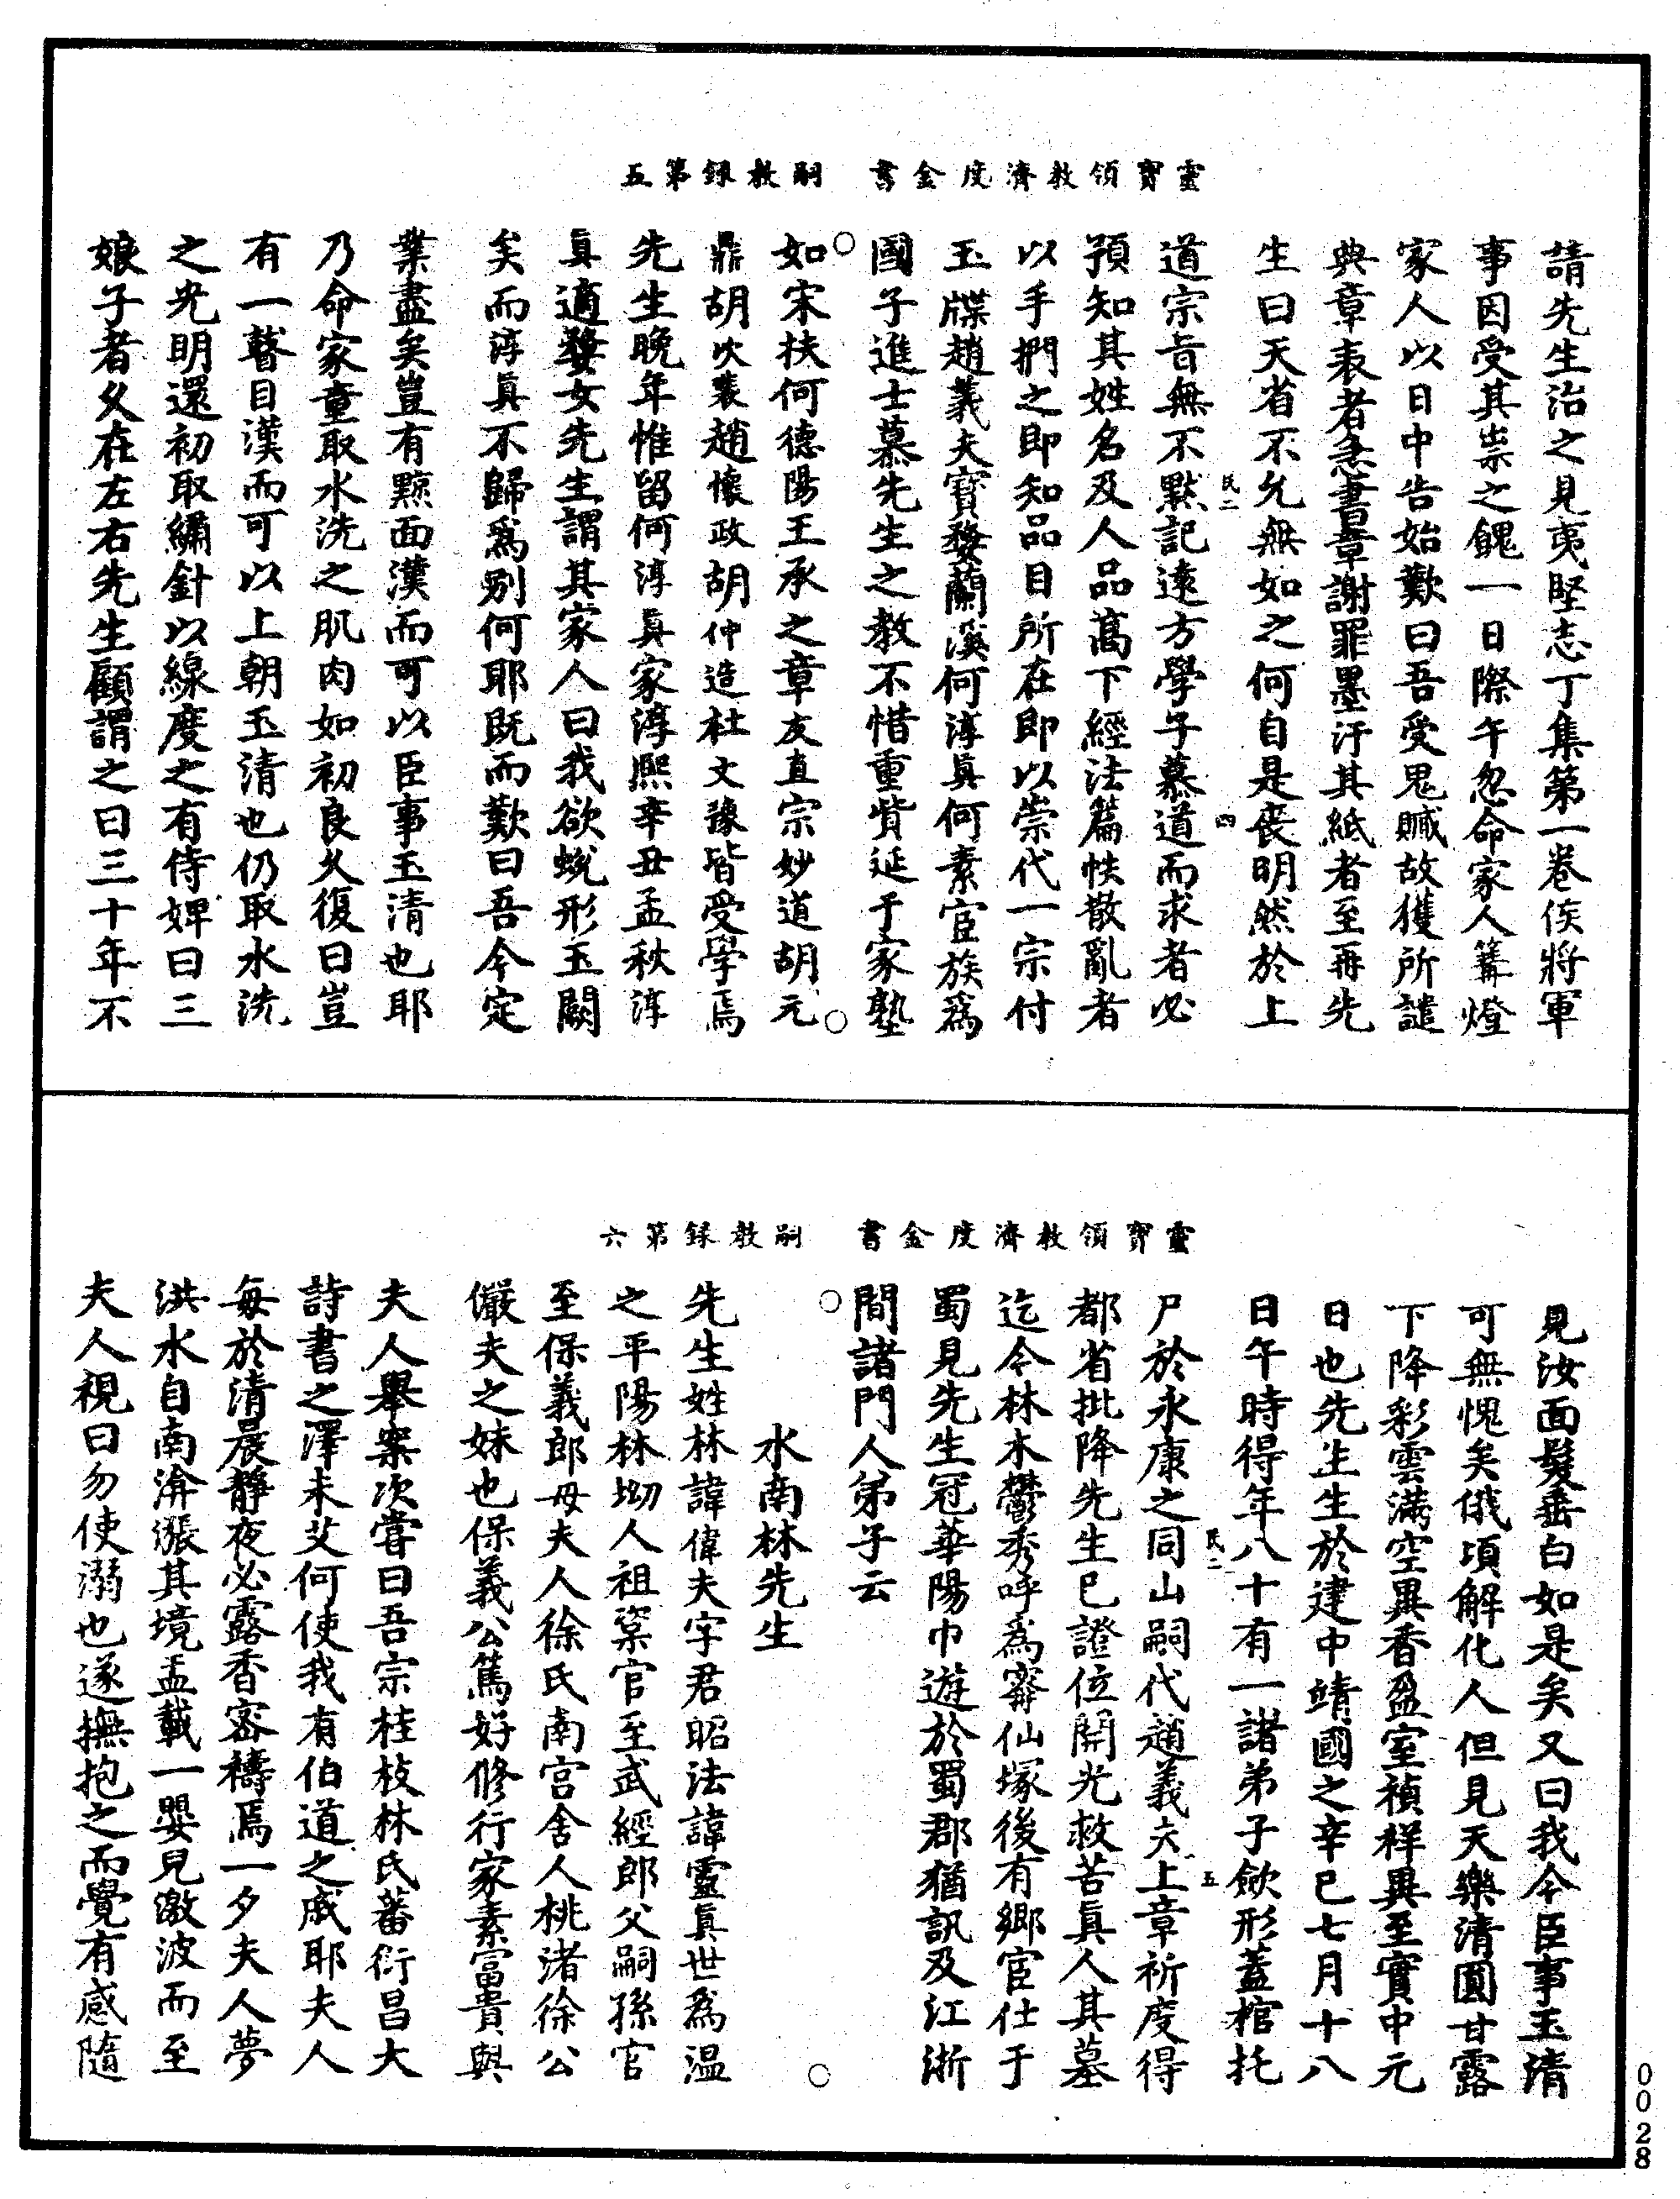 靈寶領教濟度金書　嗣教録第五
請先生治之見夷堅志丁集第一卷侯將軍
事因受其祟之餽一日際午忽命家人篝燈
家人以日中告始歎曰吾受鬼贓故獲所譴
典章表者急書章謝罪墨汙其紙者至再先
生曰天省不允無如之何自是喪明然於上
民二　四
道宗旨無不默記遠方學子慕道而求者必
預知其姓名及人品萵下經法篇帙散亂者
以手捫之即知品目所在即以崇代一宗付
玉牒趙義夫寶婺蘭溪何淳眞何素宦族爲
國子進士慕先生之教不惜重貲延于家塾
如宋扶何德陽王承之章友直宗妙道胡元
鼎胡次裴趙懷政胡仲造杜文豫皆受學焉
先生晚年惟留何淳眞家淳熙辛丑孟秋淳
眞適婺女先生謂其家人曰我欲蛻形玉闕
矣而淳眞不歸爲别何耶既而歎曰吾今定
業盡矣豈有黥面漢而可以臣事玉清也耶
乃命家童取水洗之肌肉如初良久復曰豈
有一瞽目漢而可以上朝玉清也仍取水洗
之光明還初取繡針以線度之有侍婢曰三
娘子者久在左右先生顧謂之曰三十年不
靈寶領教濟度金書　嗣教録第六
見汝面髮垂白如是矣又曰我今臣事玉清
可無愧矣俄頃解化人但見天樂清圓甘露
下降彩雲滿空異香盈室禎祥異至實中元
日也先生生於建中靖國之辛巳七月十八
日午時得年八十有一諸弟子斂形蓋棺托
民二　五
尸於永康之同山嗣代趙義夫上章祈度得
都省批降先生已證位開光救苦眞人其墓
迄今林木鬱秀呼爲甯仙塚後有鄉宦仕于
蜀見先生冠華陽巾遊於蜀郡猶訊及江浙
間諸門人弟子云
水南林先生
先生姓林諱偉夫字君昭法諱靈眞世爲温
之平陽林坳人祖棨官至武經郎父嗣孫官
至保義郎母夫人徐氏南宫舍人桃渚徐公
儼夫之妹也保義公篤好修行家素富貴與
夫人舉案次嘗曰吾宗桂枝林氏蕃衍昌大
詩書之澤未艾何使我有伯道之戚耶夫人
每於清晨靜夜必露香密禱焉一夕夫人夢
洪水自南洊漲其境盂載一嬰見激波而至
夫人視曰勿使溺也遂撫抱之而覺有感隨
0028